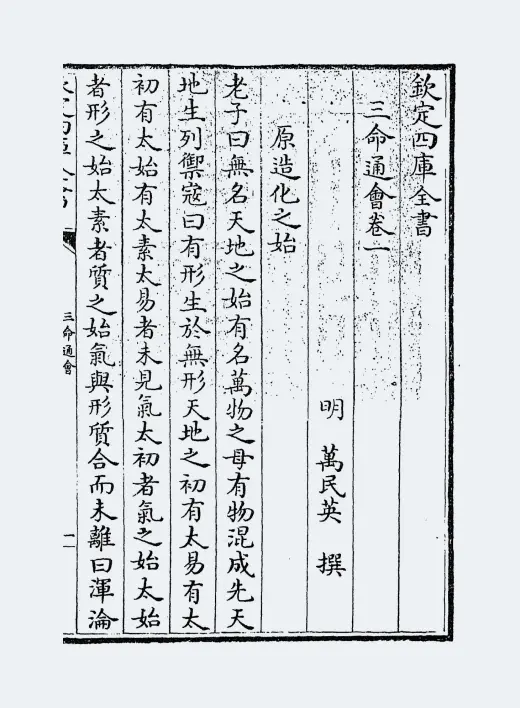 欽定四庫全書
三命通會卷一
明 萬民英 撰
原造化之始
老子曰無名天地之始有名萬物之母有物混成先天
地生列禦寇曰有形生於無形天地之初有太易有太
初有太始有太素太易者未見氣太初者氣之始太始
者形之始太素者質之始氣與形質合而未離曰渾淪
三命通會
一